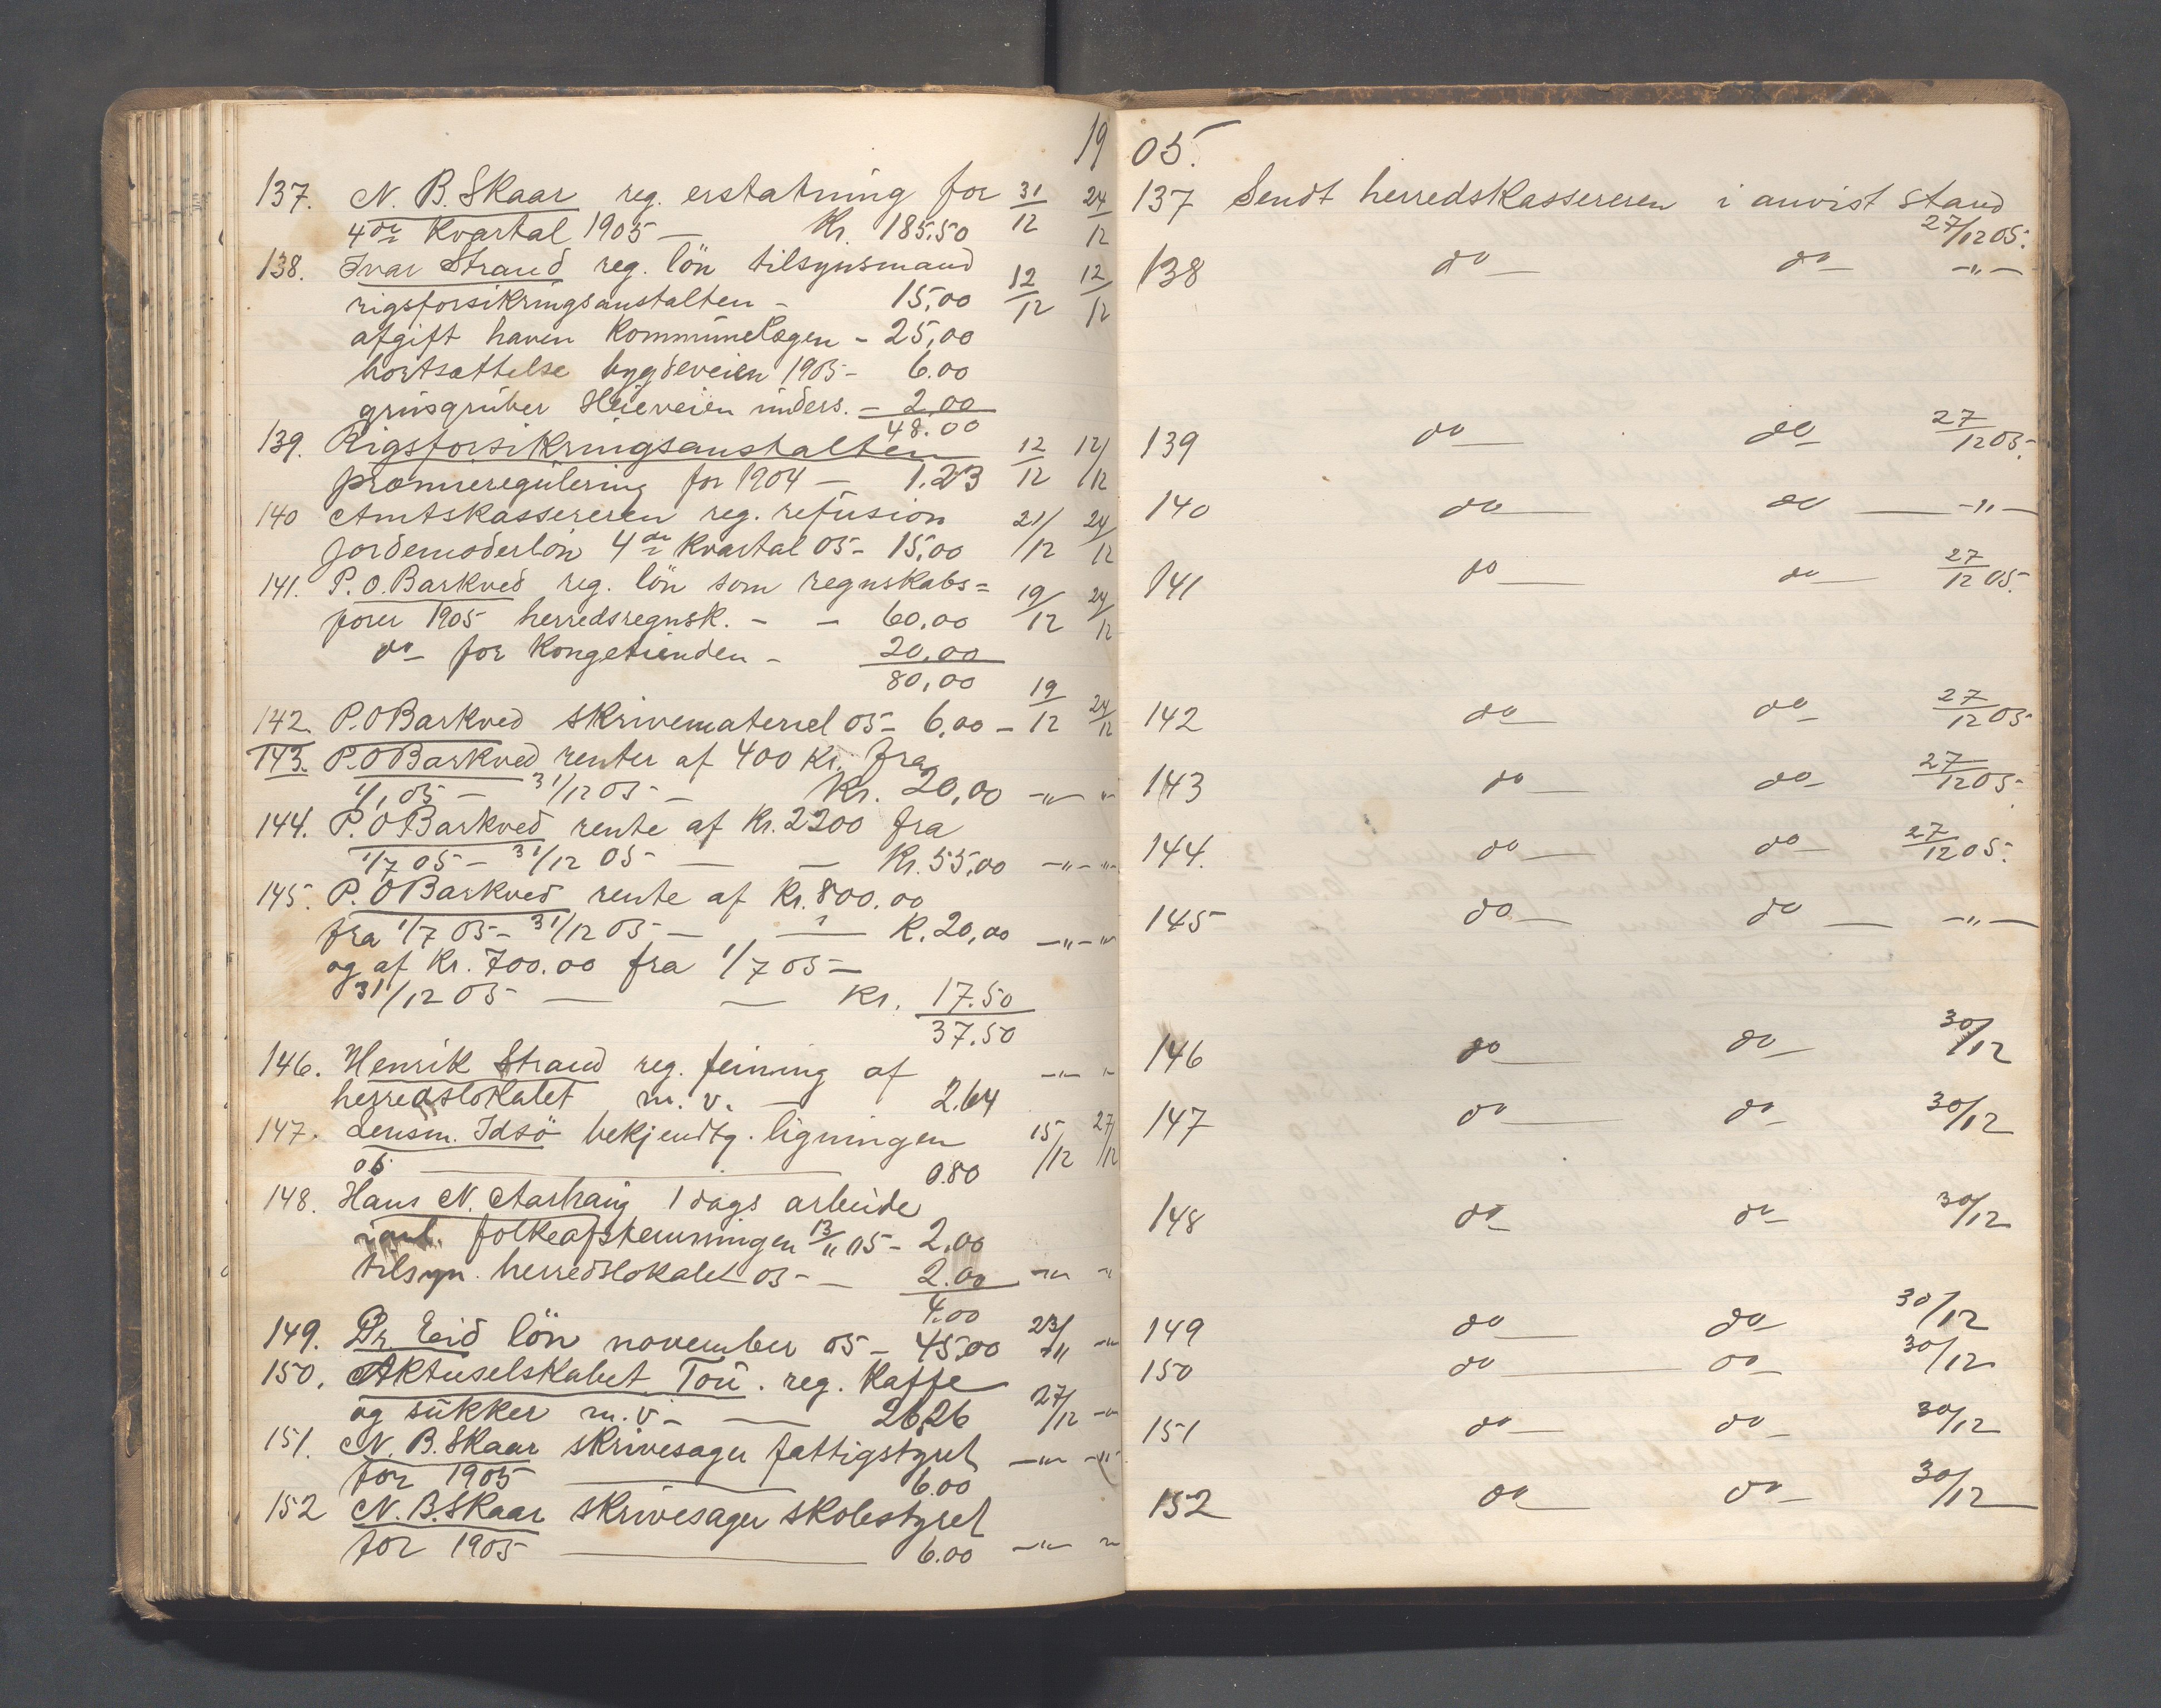 19
137. N. B. Skaar reg. erstatning for 31/12 24/12
4de kvartal 1905 — Kr. 185.50
138. Ivar Strand reg. lön tilsynsmand
rigsforsikringsanstalten - 15,00 12/12 12/12
afgift haven kommunelægen - 25,00
bortsættelse bygdeveien 1905 - 6.00
grusgruber Heieveien unders. - 2.00
48.00
139. Rigsforsikringsanstalten 12/12 12/12
præmieregulering for 1904 — 1.23
140 Amtskassereren reg. refusion 21/12 24/12
jordemoderlön 4de kvartal 05 - 15,00
141. P. O. Barkved reg. lön som regnskabs= 19/12 24/12
fører 1905 herredsregnsk. - - 60.00
do for Kongetienden - 20.00
80,00
142. P. O Barkved skrivemateriel 05 - 6,00 - 19/12 24/12
143. P. O Barkved renter af 400 Kr. fra
1/1 05 - 31/12 05 - Kr. 20,00 -"- "
144. P. O Barkved rente af Kr. 2200 fra
1/7 05 - 31/12 05 - — Kr. 55,00 -"- "
145. P. O Barkved rente af Kr. 800.00
fra 1/7 05 - 31/12 05 — K. 20,00 -"- "
og af Kr. 700.00 fra 1/7 05 -
31/12 05 — — Kr. 17.50
37.50
146. Henrik Strand reg. feining af -"- "
herredslokalet m. v. — 2.64
147. Lensm. Idsö bekjendtg. ligningen 15/12 27/12
05 — 0.80
148. Hans N. Aarhaug 1 dags arbeide
i anl. folkeafstemningen 13/11 05 - 2.00
tilsyn herredslokalet 05 - — 2.00 -"- "
4.00
149. Dr Eeid lön november 05 - 45.00 23/11 -"-
150. Aktieselskabet Tou. reg. kaffe
og sukker m. v. - — 26,26 27/12 -"-
151. N. B. Skaar skrivesager fattigstyret -"- -"-
for 1905 — 6.00
152 N. B. Skaar skrivesager skolestyret
for 1905 — 6.00 -"- "
05.
137 Sendt herredskassereren i anvist stand
27/12 05.
138 do — do — -"-
139 do — do 27/12 05.
140 do — do — -"-
141 do — do — 27/12 05.
142 do — do 27/12 05
143 do — do 27/12 05.
144. do — do 27/12 05.
145 do — do — -"-
146 do — do 30/12
147 do — do 30/12
148 do do 30/12
149 do — do 30/12
150 do — do 30/12
151 do — do 30/12
152 do — do 30/12